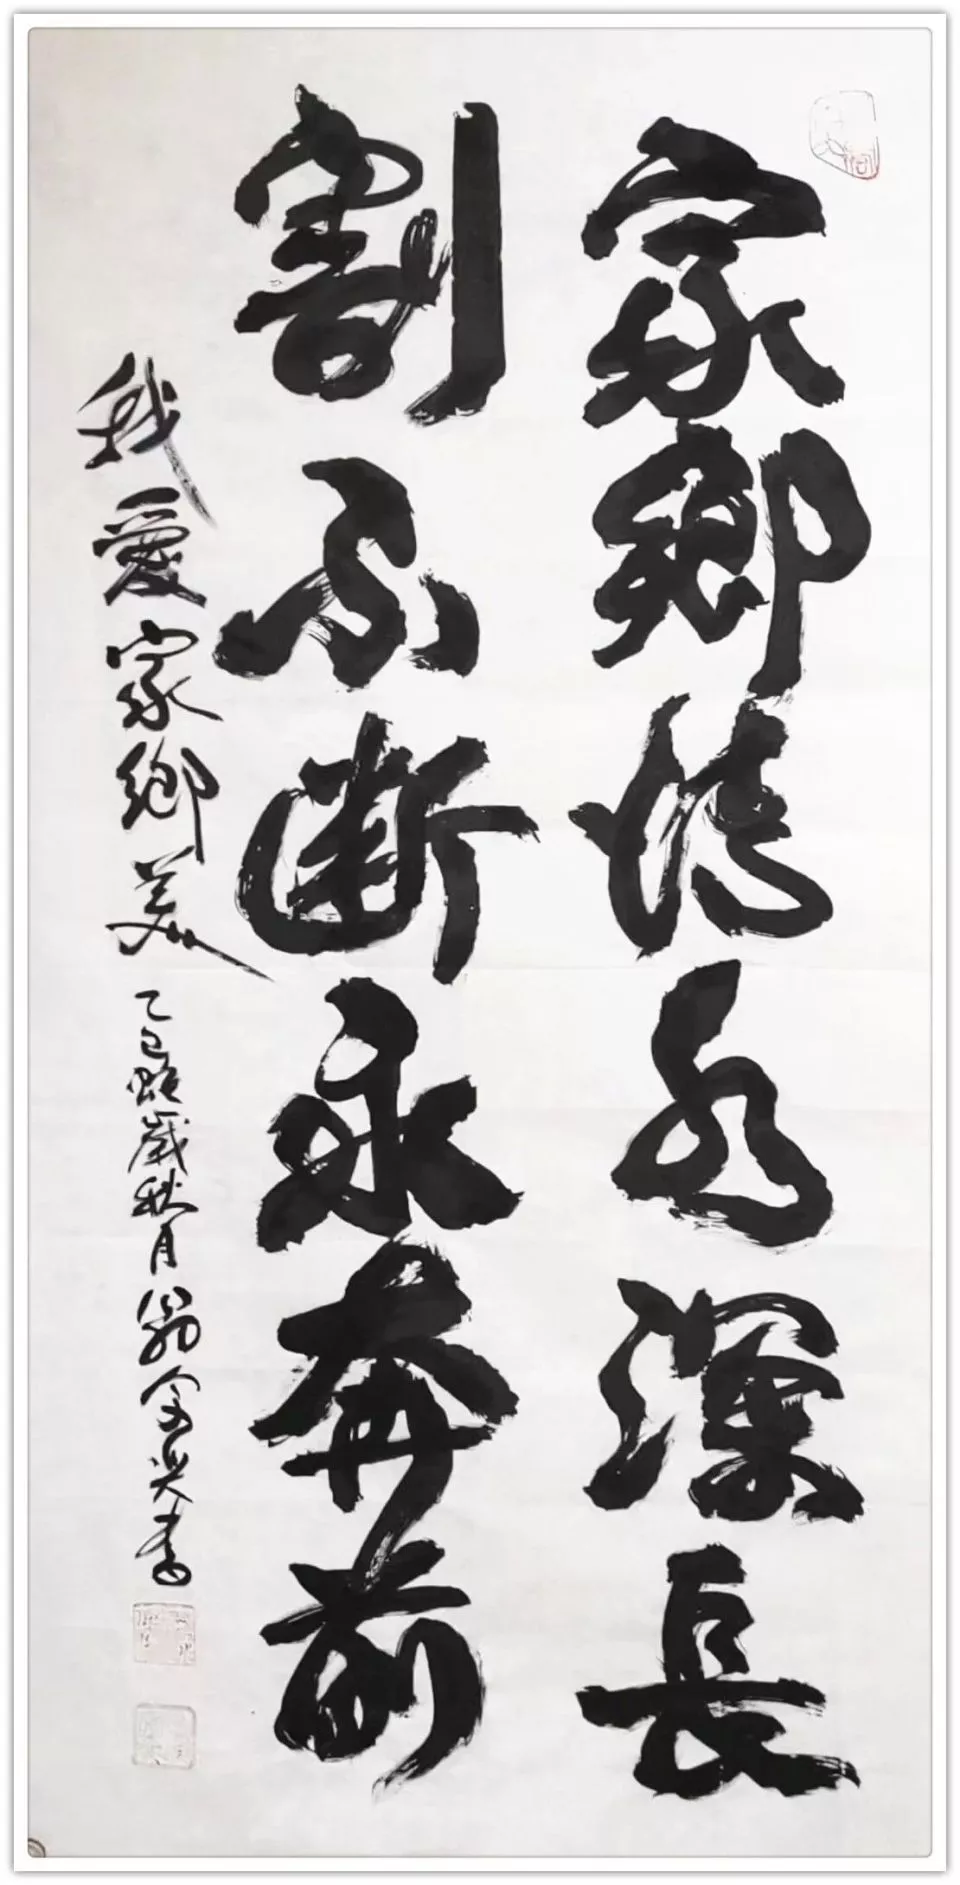 家鄉情水深長
割不斷永奔前
我愛家鄉美 乙巳蛇歲秋月翁書